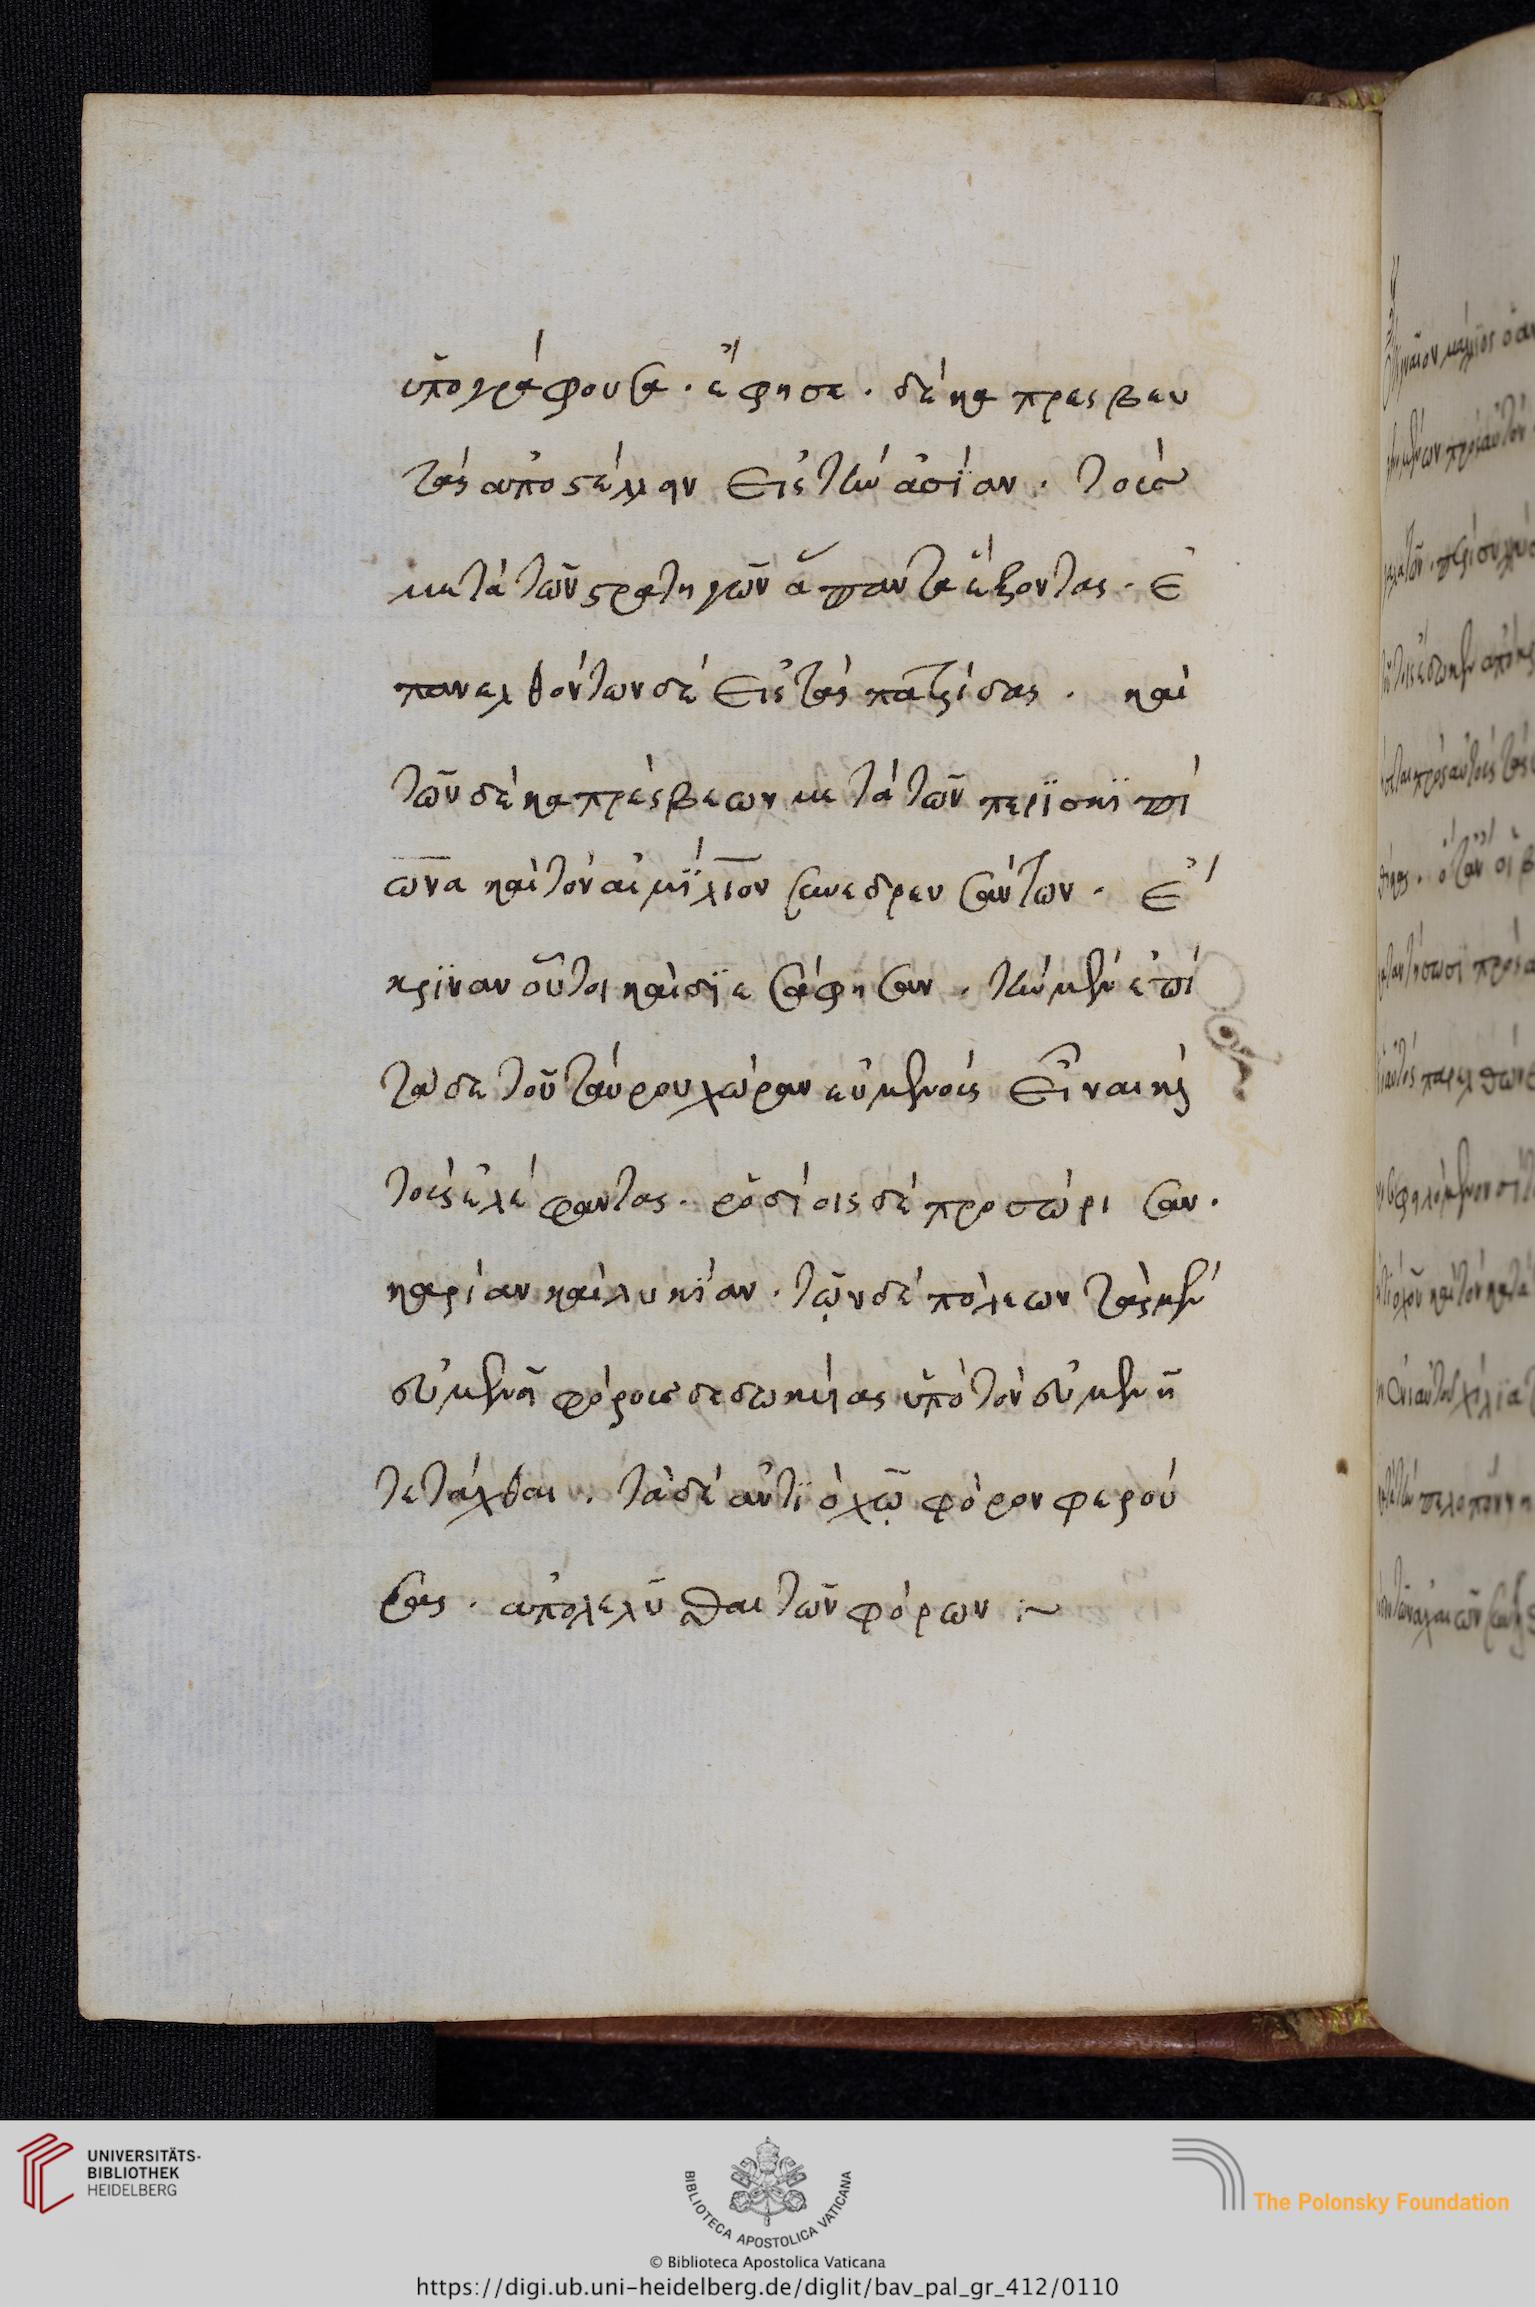 ὑπογράφουσα. ἔφησε. δέκα πρεσβευ
τὰς ἀποστέλλην εἰς τὴν ἀσίαν. τοὺς
μετὰ τῶν στρατηγῶν ἅπαντα ἕξοντας. ἐ
πανελθόντων δὲ εἰς τὰς πατρίδας. καὶ
τῶν δέκα πρέσβεων μετὰ τῶν περὶ σκιπί
ωνα καὶ τὸν αἰμίλιον συνεδρευσάντων. ἔ
κριναν οὗτοι καὶ διεσάφησαν. τὴν μὲν ἐπὶ
τάδε τοῦ ταύρου χώραν εὐμενοῖς εἶναι κὶ
τοὺς ἐλέφαντας. ῥοδίοις δὲ προσώρισαν.
καρίαν καὶ λυκίαν. τῶν δὲ πόλεων τὰς μὲν
εὐμενῆ φόρους δεδωκυίας ὑπὸ τὸν εὐμενῆ
τετάχθαι. τὰς δὲ ἀντιόχῳ φόρον φερού
σας. ἀπολελῦσθαι τῶν φόρων :~
UNIVERSITÄTS-
BIBLIOTHEK
HEIDELBERG
BIBLIOTECA APOSTOLICA VATICANA
The Polonsky Foundation
© Biblioteca Apostolica Vaticana
https://digi.ub.uni-heidelberg.de/diglit/bav_pal_gr_412/0110